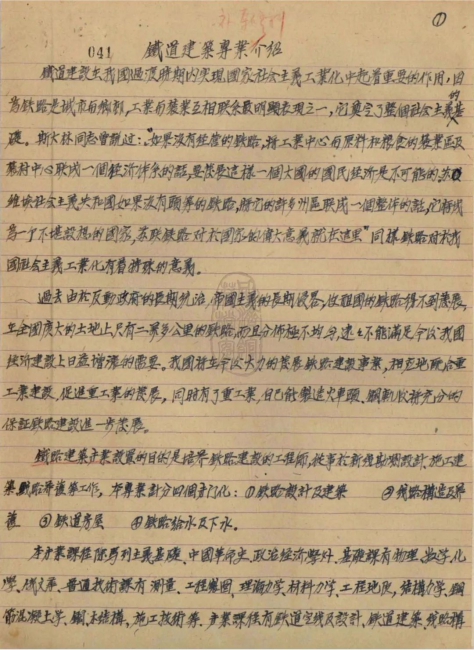 ①
041 鐵道建築專業介紹
鐵道建設在我國過渡時期內实現國家社会主義工業化中起着重要的作用,因
為铁路是城市和鄉村,工業和農業互相联系最明顯表現之一,它奠定了整個社会主義的基
礎。斯大林同志曾説过:"如果没有經營的铁路,将工業中心和原料和粮食的農業區及
農村中心联成一個經济体系的話,要發展這樣一個大國的國民經济是不可能的,苏
維埃社会主義共和國如果没有頭等的铁路,将它的許多州區联成一個整体的話,它将成
為一个不堪設想的國家,苏联铁路对於國家的偉大意義就在這里"同樣铁路对於我
國社会主義工業化有着特殊的意義。
過去由於反動政府的長期統治,帝國主義的長期侵略,使祖國的铁路得不到發展,
在全國廣大的土地上只有二萬多公里的铁路,而且分佈極不均匀,遠不能滿足今後我國
經济建設上日益增漲的需要。我國将在今後大力的發展铁路建設事業,相应地配合重
工業建設,促進重工業的發展,同時有了重工業,自己能製造火車頭、鋼軌以将充分的
保証铁路建設進一步發展。
鐵路建築专業設置的目的是培养铁路建設的工程師,從事於新线勘測設計施工建
築铁路养護等工作,本專業計分四個专门化:①铁路設計及建築 ②线路構造及养
護 ③鉄道房屋 ④铁路給水及下水。
本专業課程除馬列主義基礎、中國革命史、政治經济學外,基礎課有物理、数学、化
學、俄文等,普通技術課有測量、工程製圖、理論力学、材料力学、工程地质、結構力学、鋼
筋混凝土学、鋼、木結構、施工技術等,专業課程有鉄道定线及設計、鉄道建築、线路構